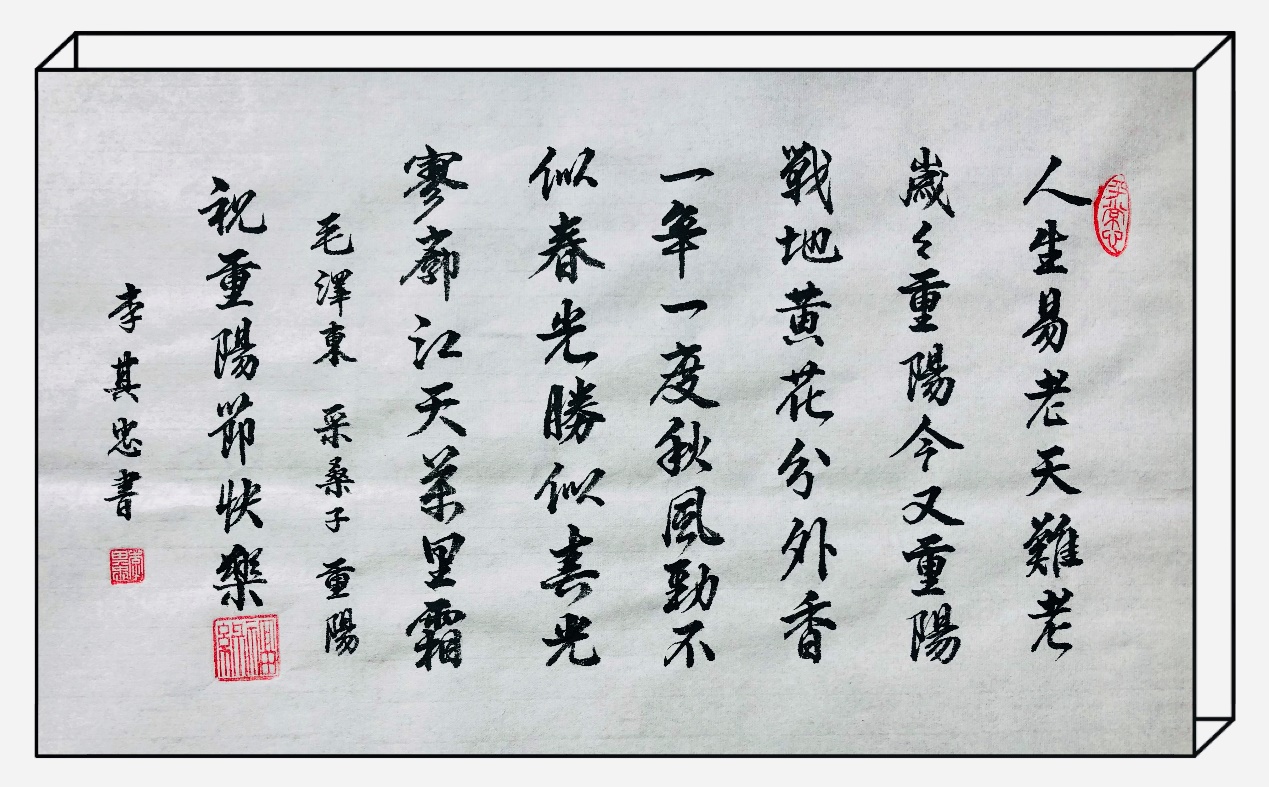 平常心
人生易老天難老
歲々重陽今又重陽
戰地黄花分外香
一年一度秋風勁不
似春光勝似春光
寥廓江天萬里霜
毛澤東 采桑子 重陽
祝重陽節快樂
李其忠書